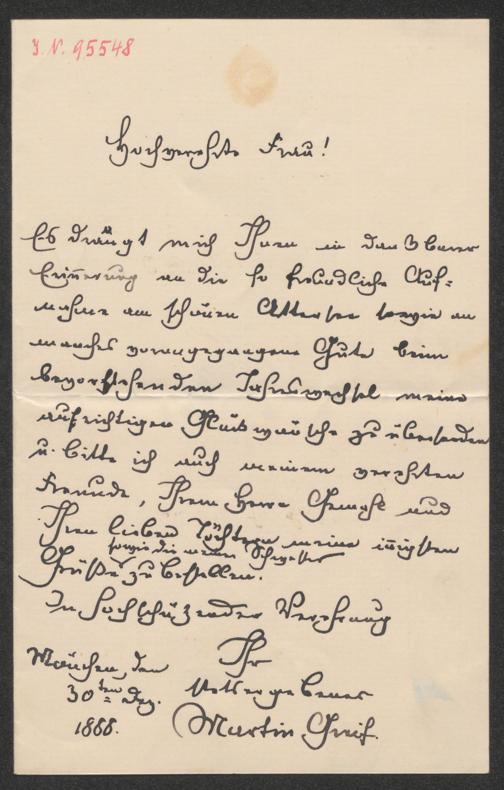 I. N. 95548
Hochverehrte Frau!
Es drängt mich Ihnen in dankbarer
Erinnerung an die so freundliche Auf-
nahme am schönen Attersee sowie an
manches vorangegangene Gute beim
bevorstehenden Jahreswechsel meine
aufrichtigen Glückwünsche zu übersenden
u. bitte ich auch meinem verehrten
Freunde, Ihrem Herrn Gemahl und
Ihren lieben Töchtern meine innigsten
sowie die meiner Schwester
Grüße zu bestellen.
In hochschätzender Verehrung
Ihr
München, den
stets ergebener
30ten Dez.
1888.
Martin Greif.